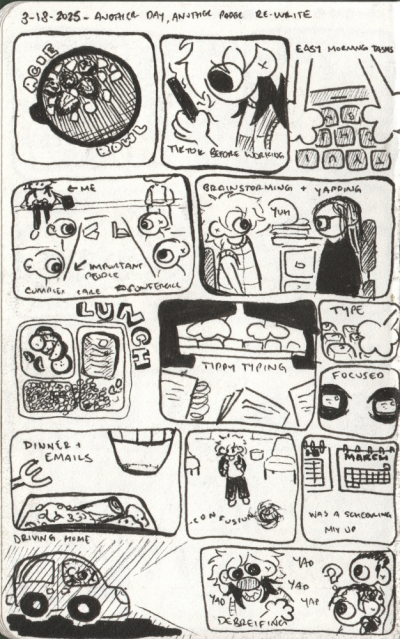 3-18-2025 - ANOTHER DAY, ANOTHER PODGE RE-WRITE
ACIE
BOWL
TIKTOK BEFORE WORKING
EASY MORNING TASKS
← ME
IMPORTANT
PEOPLE
COMPLEX CARE CONFERENCE
BRAINSTORMING + YAPPING
YUH
LUNCH
TIPPY TYPING
TYPE
FOCUSED
DINNER +
EMAILS
CONFUSING
MARCH
WAS A SCHEDULING
MIX UP
DRIVING HOME
YAP
YAP
YAP
YAP
?
DEBREIFING